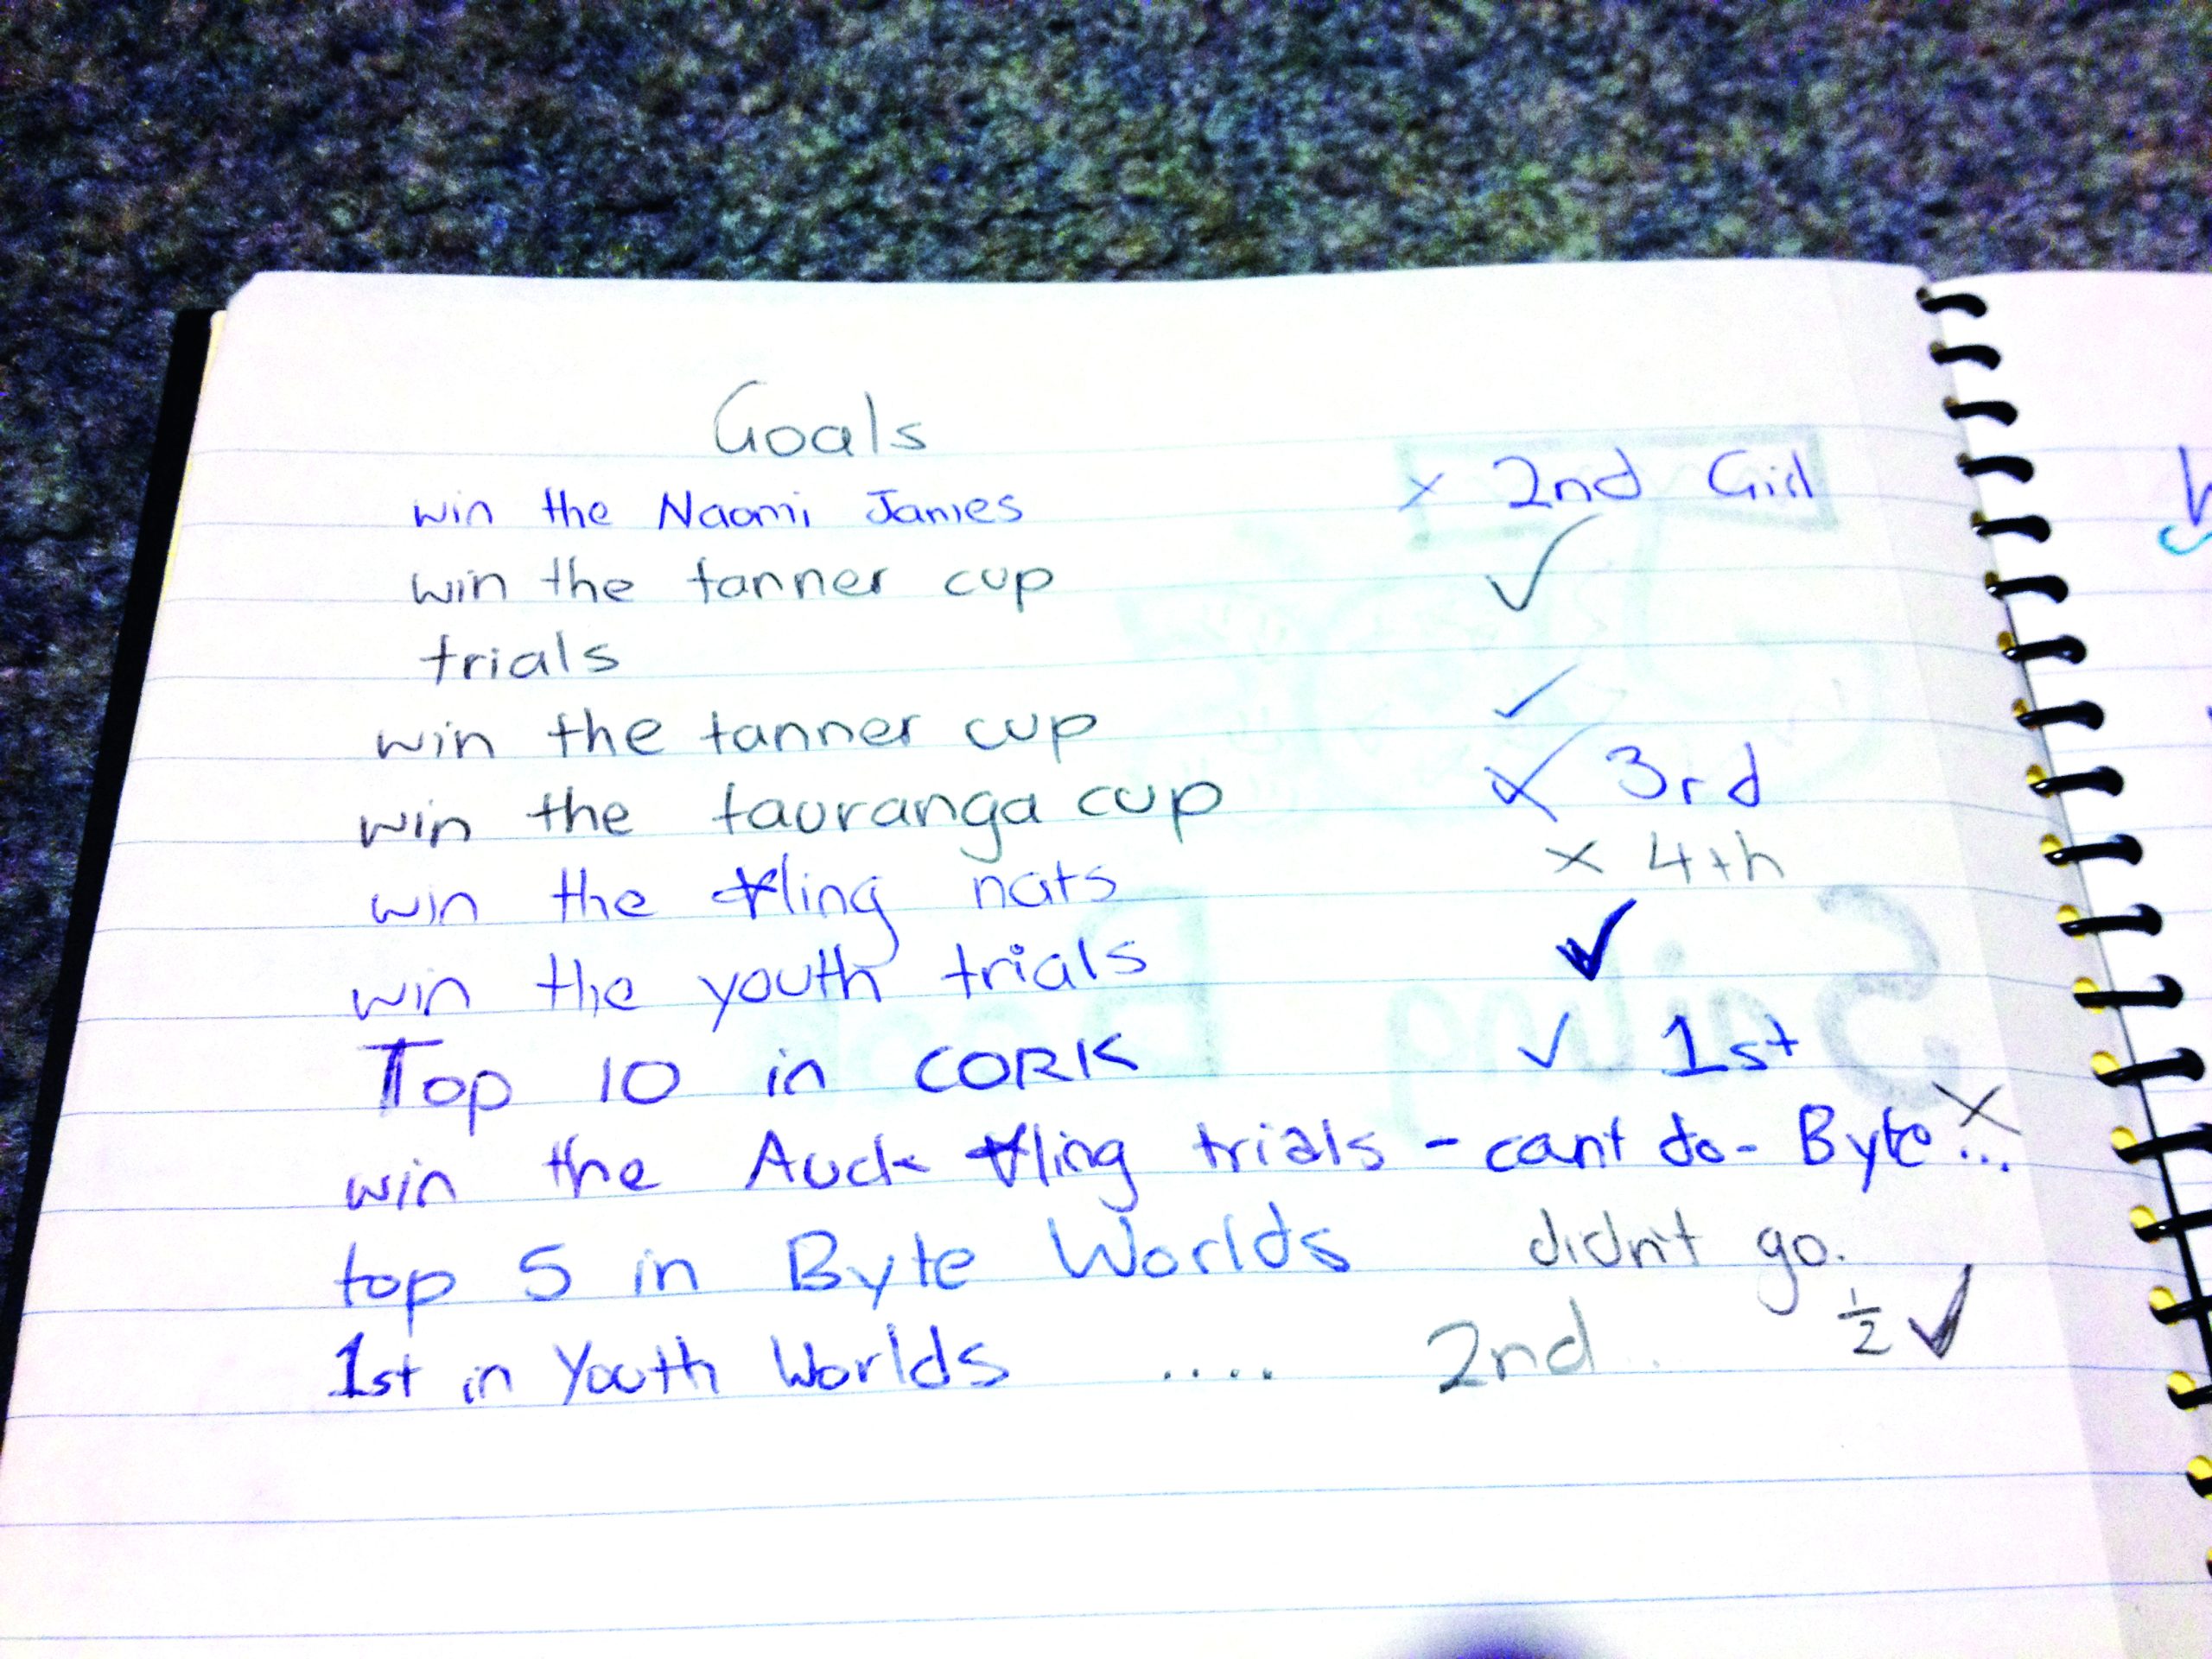 Goals
win the Naomi James × 2nd Girl
win the tanner cup ✓
trials
win the tanner cup ✓
win the tauranga cup × 3rd
win the ling nats × 4th
win the youth trials ✓
Top 10 in CORK ✓ 1st
win the Auck trials - cant do - Byte... ×
top 5 in Byte Worlds didn't go.
1st in Youth Worlds .... 2nd ½ ✓
Sailing